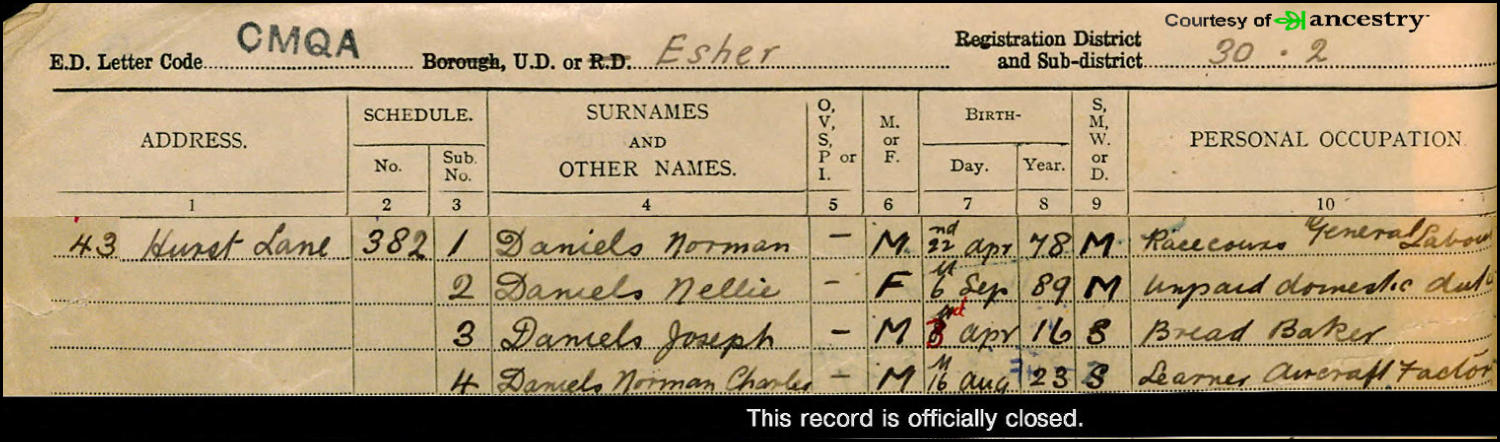 Courtesy of ancestry
E.D. Letter Code CMQA Borough, U.D. or R.D. Esher Registration District and Sub-district 30 . 2
ADDRESS. SCHEDULE. No. Sub. No. SURNAMES AND OTHER NAMES. O, V, S, P or I. M. or F. BIRTH- Day. Year. S, M, W. or D. PERSONAL OCCUPATION.
1 2 3 4 5 6 7 8 9 10
43 Hurst Lane 382 1 Daniels Norman — M 22nd Apr 78 M Racecourse General Labou
2 Daniels Nellie - F 6th Sep 89 M Unpaid domestic duti
3 Daniels Joseph - M 3rd Apr 16 S Bread Baker
4 Daniels Norman Charles - M 16th Aug 23 S Learner Aircraft Factor
This record is officially closed.